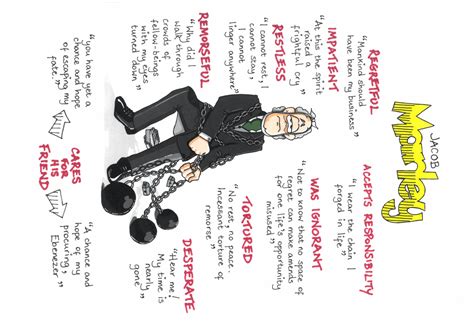 JACOB
Marley
REGRETFUL
"Mankind should
have been my business"
IMPATIENT
"At this the spirit
raised a
frightful cry"
RESTLESS
"I cannot rest, I
cannot stay, I
cannot
linger anywhere"
REMORSEFUL
"Why did I
walk through
crowds of
fellow-beings
with my eyes
turned down"
ACCEPTS RESPONSIBILTY
"I wear the chain I
forged in life"
WAS IGNORANT
"Not to know that no space of
regret can make amends
for one life's opportunity
misused"
TORTURED
"No rest, no peace.
Incessant torture of
remorse"
DESPERATE
"Hear me!
My time is
nearly
gone"
CARES
FOR
HIS
FRIEND
"you have yet a
chance and hope
of escaping my
fate."
"A chance and
hope of my
procuring,
Ebenezer"